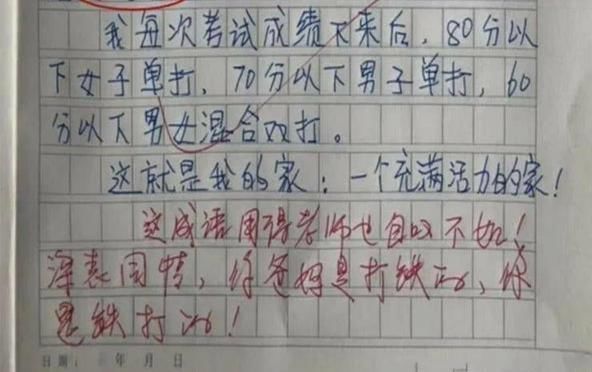 我每次考试成绩下来后，80分以
下女子单打，70分以下男子单打，60
分以下男女混合双打。
这就是我的家：一个充满活力的家！
这成语用得老师也自叹不如！
深表同情，你爸妈是打铁的，你
是铁打的！
日期：  年  月  日